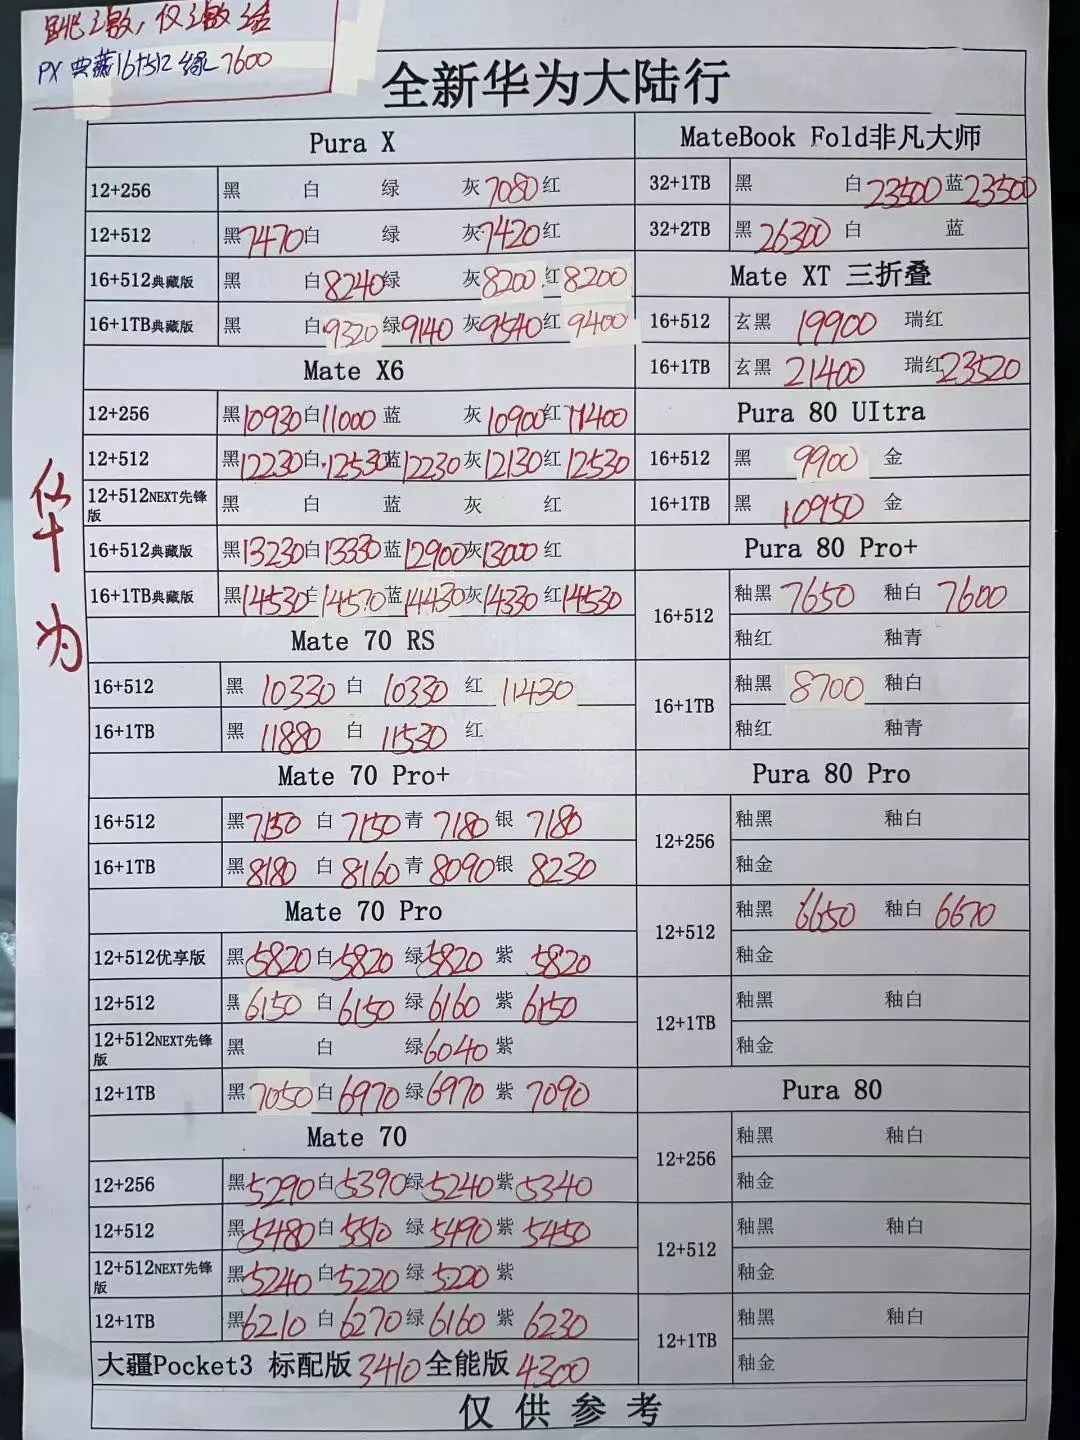 跳激,仅激活
PX 典藏16+512 绿 7600
全新华为大陆行
华为
Pura X
12+256 黑 白 绿 灰7080红
12+512 黑7470白 绿 灰7420红
16+512典藏版 黑 白8240绿 灰8200红8200
16+1TB典藏版 黑 白9320绿9140灰9540红9400
Mate X6
12+256 黑10930白11000蓝 灰10900红11400
12+512 黑12230白12530蓝12230灰12130红12530
12+512NEXT先锋版 黑 白 蓝 灰 红
16+512典藏版 黑13230白13330蓝12900灰13000红
16+1TB典藏版 黑14530白14570蓝14430灰14330红14530
Mate 70 RS
16+512 黑 10330 白 10330 红 11430
16+1TB 黑 11880 白 11530 红
Mate 70 Pro+
16+512 黑7150 白7150青7180银 7180
16+1TB 黑8180 白8160青8090银 8230
Mate 70 Pro
12+512优享版 黑5820白5820绿5820紫 5820
12+512 黑6150白6150绿6160紫6150
12+512NEXT先锋版 黑 白 绿6040紫
12+1TB 黑7050白6970绿6970紫 7090
Mate 70
12+256 黑5290白5390绿5240紫5340
12+512 黑5480白5510绿5490紫5450
12+512NEXT先锋版 黑5240白5220绿5220紫
12+1TB 黑6210白6270绿6160紫 6230
大疆Pocket3 标配版3410全能版4300
MateBook Fold非凡大师
32+1TB 黑 白23500蓝23500
32+2TB 黑26300白 蓝
Mate XT 三折叠
16+512 玄黑 19900 瑞红
16+1TB 玄黑 21400 瑞红23520
Pura 80 UItra
16+512 黑 9900 金
16+1TB 黑 10950 金
Pura 80 Pro+
16+512 釉黑 7650 釉白 7600
釉红 釉青
16+1TB 釉黑 8700 釉白
釉红 釉青
Pura 80 Pro
12+256 釉黑 釉白
釉金
12+512 釉黑 6650 釉白 6670
釉金
12+1TB 釉黑 釉白
釉金
Pura 80
12+256 釉黑 釉白
釉金
12+512 釉黑 釉白
釉金
12+1TB 釉黑 釉白
釉金
仅供参考